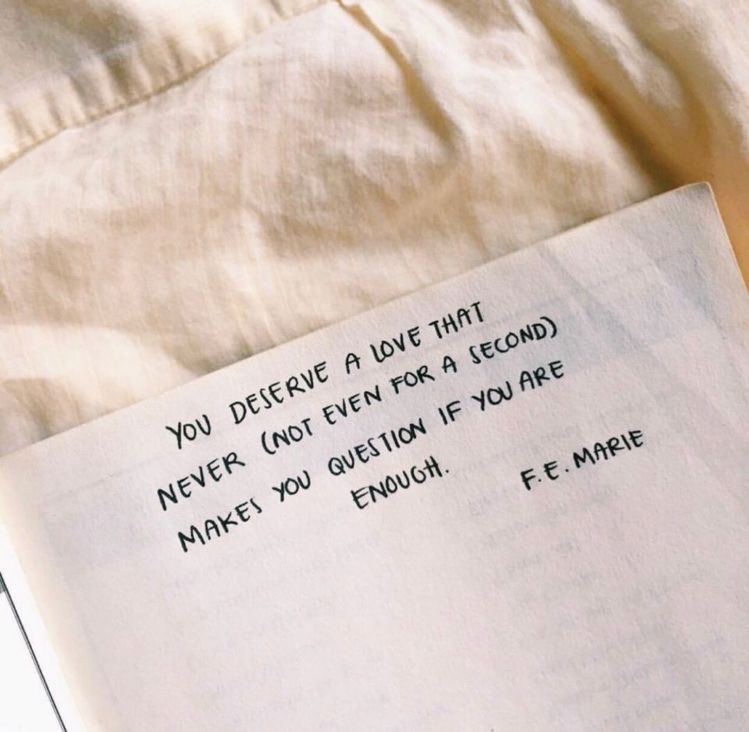 YOU DESERVE A LOVE THAT
NEVER (NOT EVEN FOR A SECOND)
MAKES YOU QUESTION IF YOU ARE
ENOUGH.
F.E. MARIE